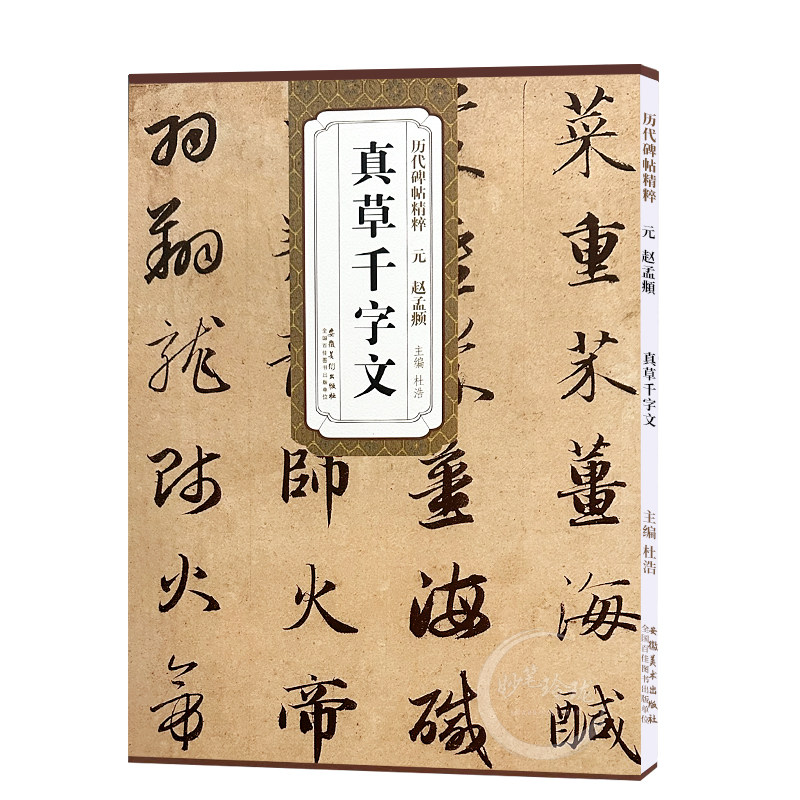 历代碑帖精粹 元 赵孟頫
主编 杜浩
真草千字文
安徽美术出版社
全国百佳图书出版单位
菜重芥薑海醎
薑海
師火帝
羽翔龍師火帝
历代碑帖精粹 元 赵孟頫 真草千字文 主编 杜浩
安徽美术出版社
全国百佳图书出版单位